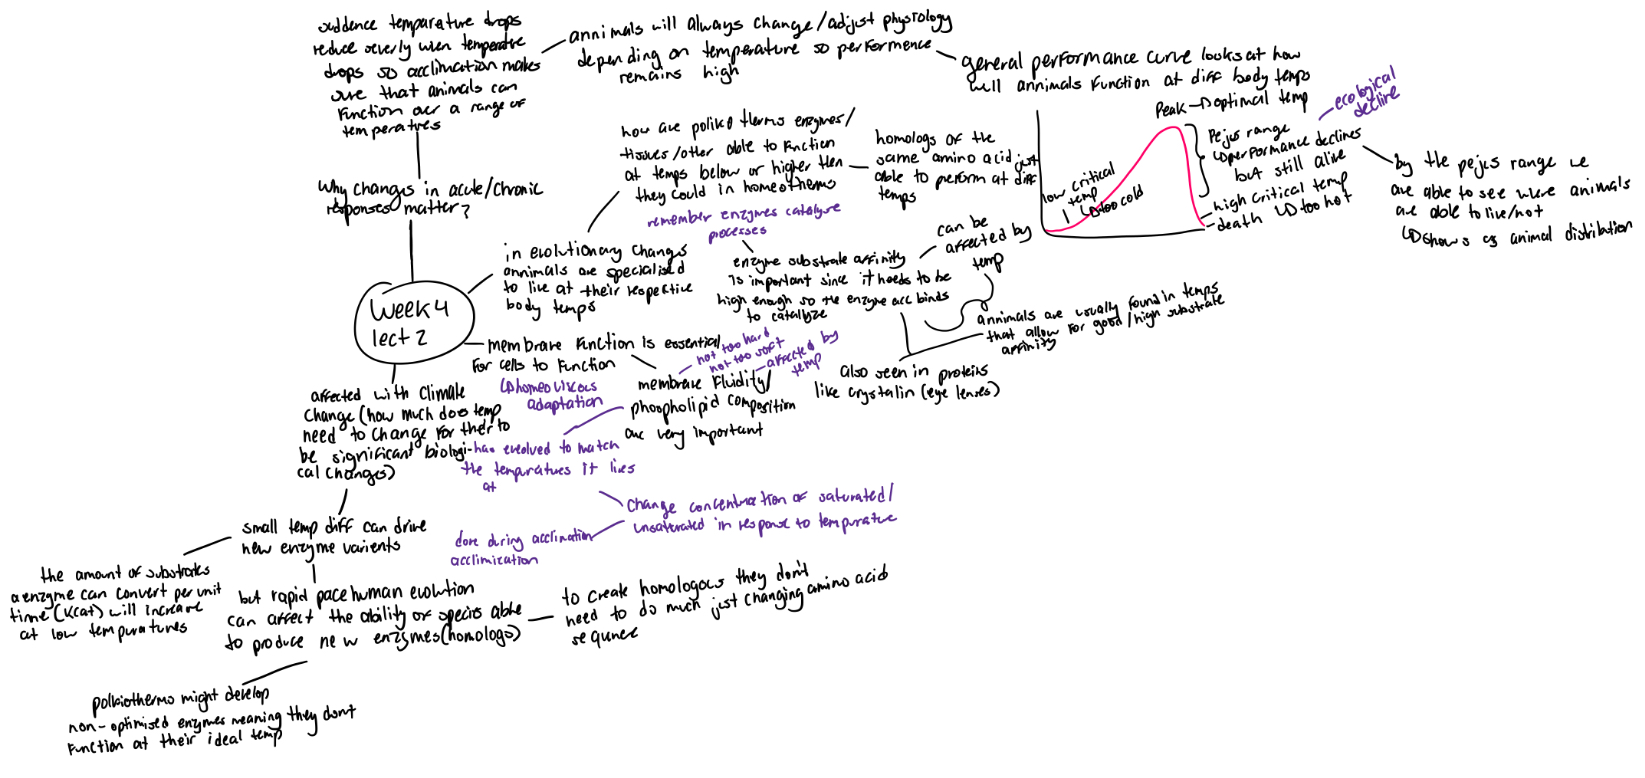 suddence temparature drops
reduce severly wen temperatre
drops so acclimation makes
sure that animals can
function over a range of
temperatures
annimals will always change/adjust physiology
depending on temperature so performence
remains high
general performance curve looks at how
well annimals function at diff body temps
Peak → optimal temp
ecological
decline
Pejus range
↳ performance declines
but still alive
low critical
temp
↳ too cold
high critical temp
↳ too hot
death
by the pejus range we
are able to see were animals
are able to live/not
↳ shows as animal distribution
Why changes in acute/chronic
responses matter?
how are poliko therms enzymes/
tissues/other able to function
at temps below or higher then
they could in homeotherms
homologs of the
same amino acid just
able to perform at diff
temps
remember enzymes catalyse
processes
in evolutionary changes
annimals are specialised
to live at their respective
body temps
enzyme substrate affinity
is important since it needs to be
high enough so the enzyme acc binds
to catalyze
can be
affected by
temp
annimals are usually found in temps
that allow for good/high substrate
affinity
also seen in proteins
like crystalin (eye lenses)
Week 4
lect 2
membrare function is essential
for cells to function
↳ homeoviscous
adaptation
not too hard
not too soft
affected by
temp
membrare fluidity/
phospholipid composition
are very important
has evolved to match
the tempuratures it lives
at
change concentration of saturated/
unsaturated in response to tempurature
done during acclimation
acclimization
affected with climate
change (how much does temp
need to change for ther to
be significant biologi-
cal changes)
small temp diff can drive
new enzyme varients
the amount of substrates
a enzyme can convert per unit
time (Kcat) will increase
at low tempuratures
but rapid pace human evolution
can affect the ability of species able
to produce new enzymes (homologs)
to create homologous they don't
need to do much just changing amino acid
sequnce
polkiotherms might develop
non-optimised enzymes meaning they dont
function at their ideal temp